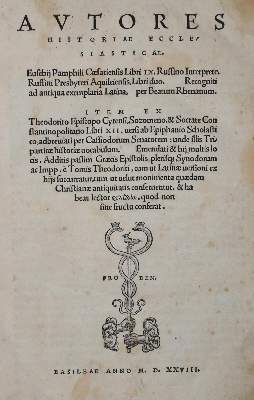 AVTORES
HISTORIAE ECCLE/
SIASTICAE.
Eusebij Pamphili Cæsariensis Libri IX. Ruffino Interprete.
Ruffini Presbyteri Aquileiensis, Libri duo. Recogniti
ad antiqua exemplaria Latina, per Beatum Rhenanum.
ITEM EX
Theodorito Episcopo Cyrensi, Sozomeno, & Socrate Con
stantinopolitano Libri XII. uersi ab Epiphanio Scholasti
co, adbreuiati per Cassiodorum Senatorem: unde illis Tri
partitæ historiæ uocabulum. Emendati & hij multis lo
cis. Additis passim Græcis Epistolis, plerisq; Synodorum
ac Impp. è Tomis Theodoriti, cum ut Latinæ uersioni ex
hijs succurratur, tum ut uelut monimenta quædam
Christianæ antiquitatis conseruentur, & ha
beat lector quod non
sine fructu conferat.
FRO BEN.
BASILEAE ANNO M. D. XXVIII.